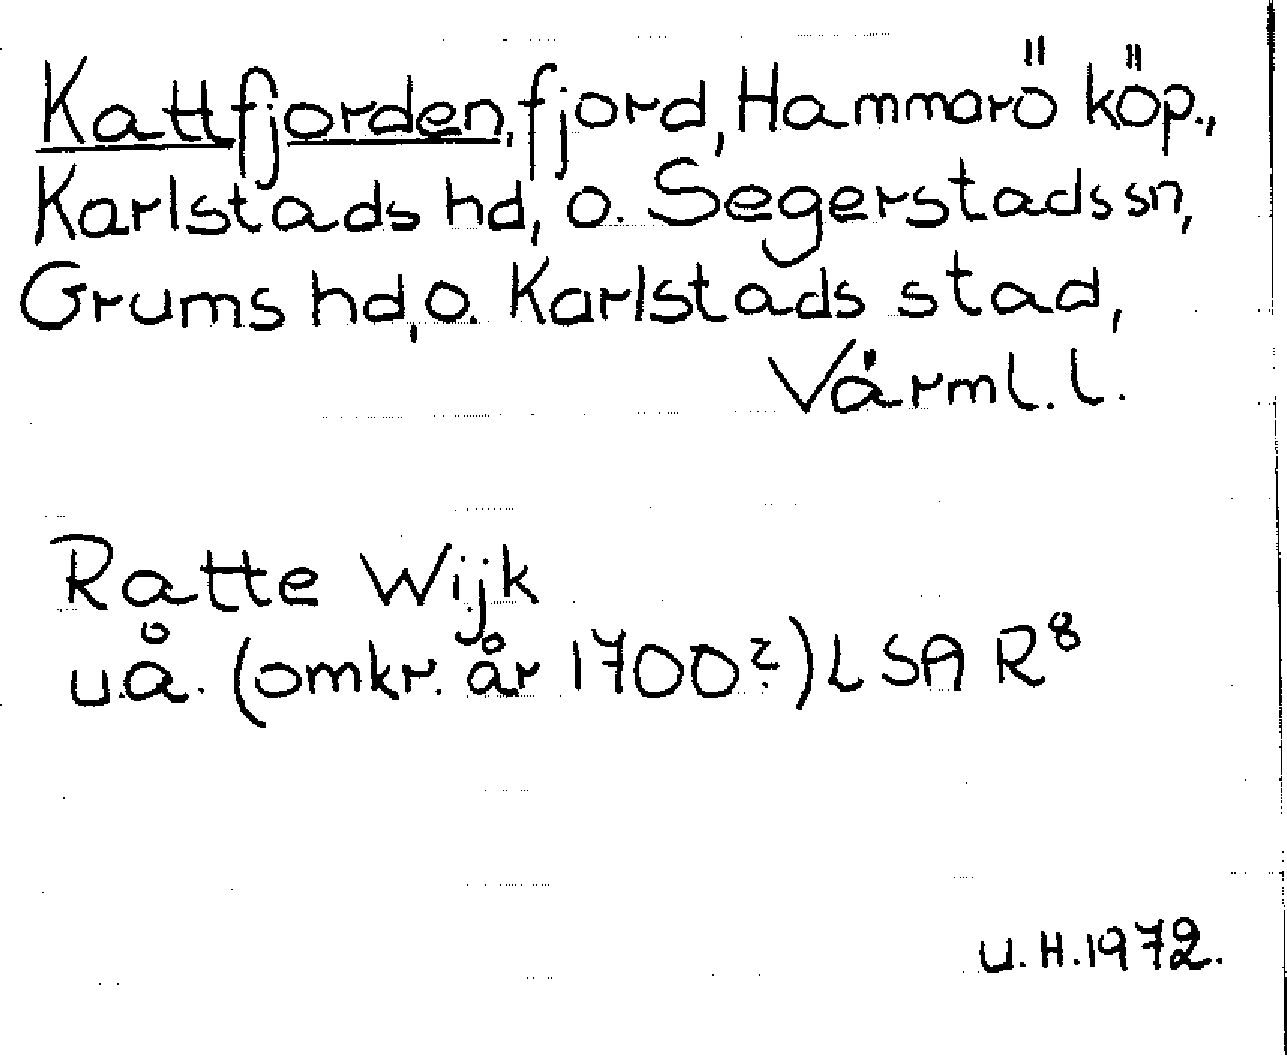 Kattfjorden, fjord, Hammarö köp.,
Karlstads hd, o. Segerstads sn,
Grums hd, o. Karlstads stad,
Värml. l.
Ratte Wijk
u.å. (omkr. år 1700?) LSA R8
U.H.1972.